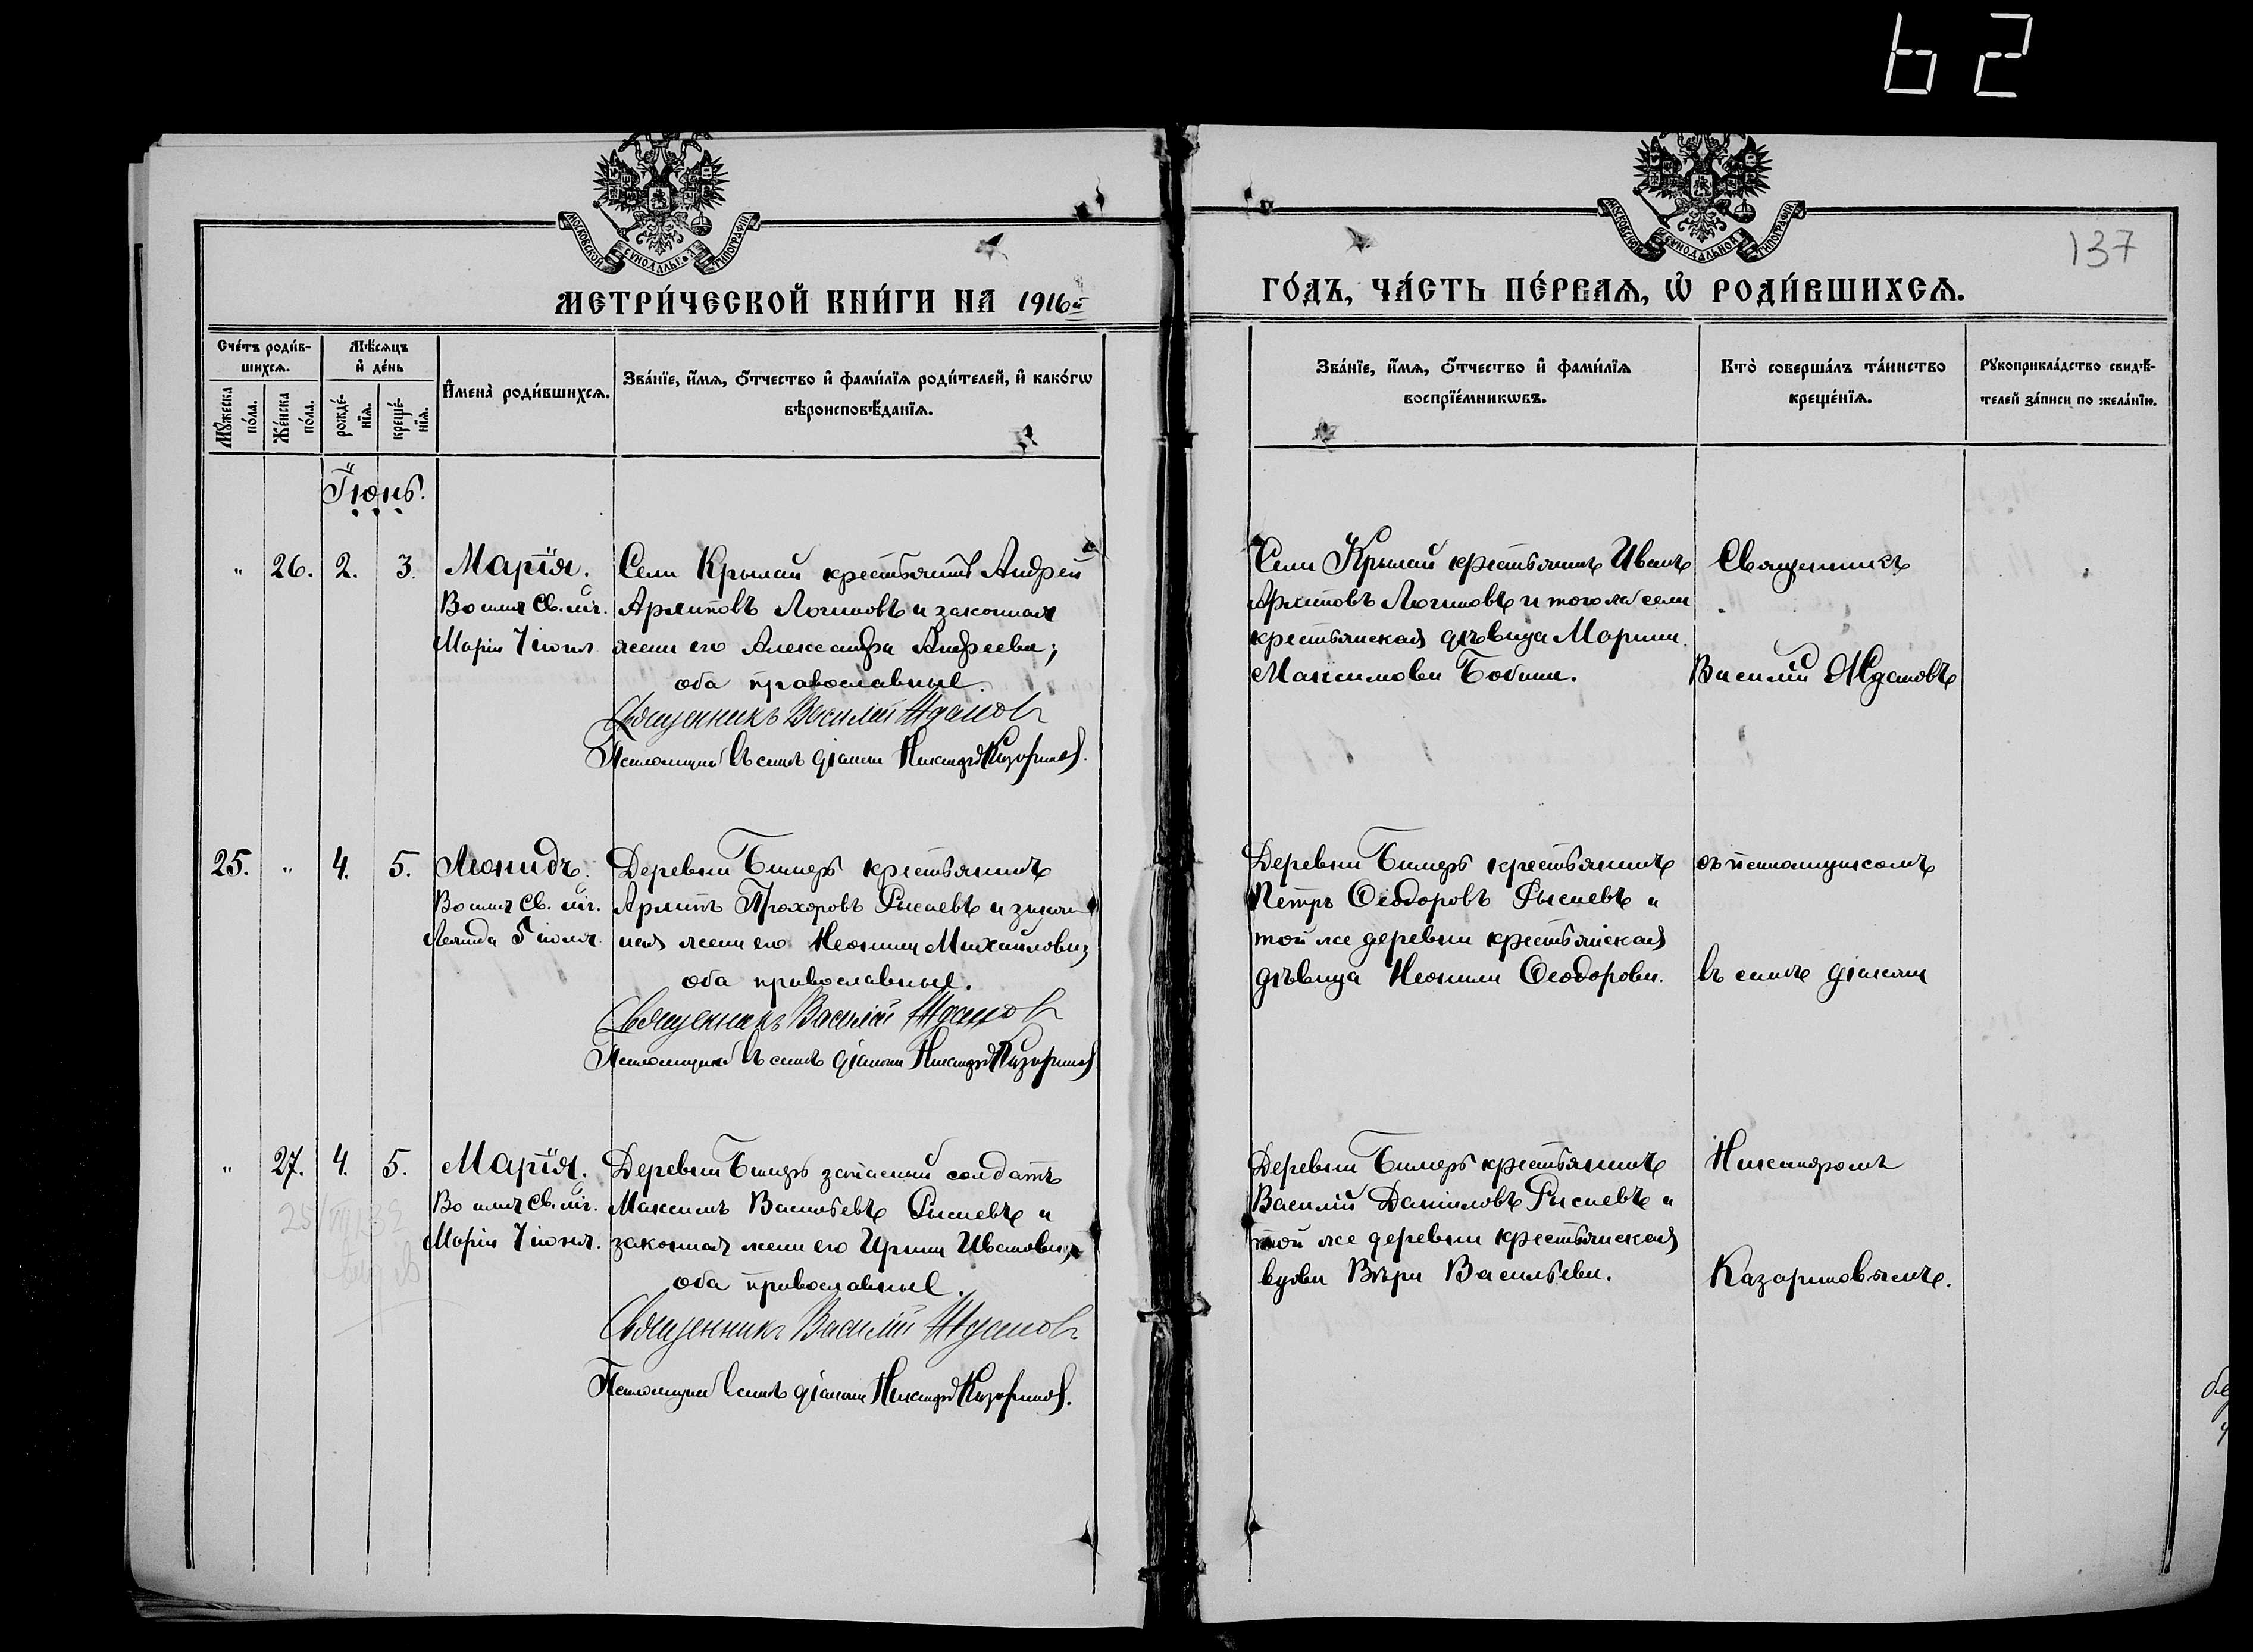 62
137
МОСКОВСКОЙ СѴНОДАЛЬНОЙ ТИПОГРАФІИ
МОСКОВСКОЙ СѴНОДАЛЬНОЙ ТИПОГРАФІИ
МЕТРИ́ЧЕСКОЙ КНИ́ГИ НА 1916й
ГО́ДЪ, ЧА́СТЬ ПЕ́РВАѦ, Ѡ҆ РОДИ́ВШИХСѦ.
Сче́тъ роди́в-
шихсѧ.
Мѣ́сѧцъ
и҆ де́нь
Мꙋ́жеска
по́ла.
Же́нска
по́ла.
рожде́-
нїѧ.
креще́-
нїѧ.
И҆мена̀ роди́вшихсѧ.
Зва́нїе, и҆́мѧ, ѻ҆́тчество и҆ фами́лїѧ роди́телей, и҆ како́гѡ
вѣроисповѣ́данїѧ.
Зва́нїе, и҆́мѧ, ѻ҆́тчество и҆ фами́лїѧ
воспрїе́мникѡвъ.
Кто̀ соверша́лъ та́инство
креще́нїѧ.
Рꙋкоприкла́дство свидѣ́-
телей за́писи по жела́нїю.
Іюнь.
" 26. 2. 3. Марія.
Во имя св. мч.
Маріи 7 іюня
Села Крылай крестьянинъ Андрей
Архиповъ Логиновъ и законная
жена его Александра Андреева;
оба православные.
Священникъ Василій Ждановъ
Псаломщикъ въ санѣ діакона Никандръ Казариновъ.
Села Крылай крестьянинъ Иванъ
Архиповъ Логиновъ и того же села
крестьянская дѣвица Марина
Максимова Бобина.
Священникъ
Василій Ждановъ
25. " 4. 5. Леонидъ.
Во имя св. мч.
Леонида 5 іюня.
Деревни Бимеръ крестьянинъ
Архипъ Прохоровъ Рысаевъ и закон
ная жена его Неонила Михайлова;
оба православные.
Священникъ Василій Ждановъ
Псаломщикъ въ санѣ діакона Никандръ Казариновъ
Деревни Бимеръ крестьянинъ
Петръ Ѳеодоровъ Рысаевъ и
той же деревни крестьянская
дѣвица Неонила Ѳеодорова.
съ псаломщикомъ
въ санѣ діакона
" 27. 4. 5. Марія.
Во имя св. мч.
Маріи 7 іюня.
Деревни Бимеръ запасный солдатъ
Максимъ Васильевъ Рысаевъ и
законная жена его Ирина Иванова;
оба православные.
Священникъ Василій Ждановъ
Псаломщикъ въ санѣ діакона Никандръ Казариновъ.
Деревни Бимеръ крестьянинъ
Василій Даниловъ Рысаевъ и
той же деревни крестьянская
вдова Вѣра Васильева.
Никандромъ
Казариновымъ.